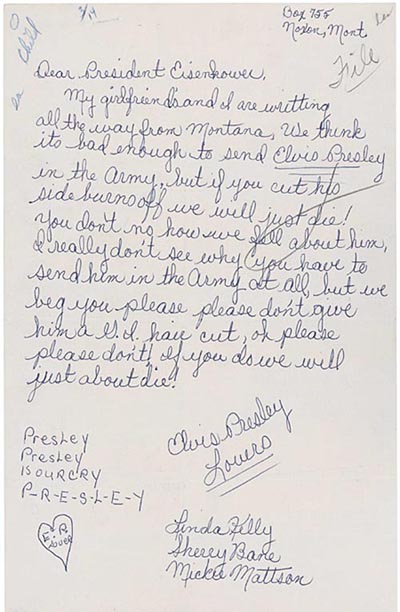 Box 755
Noxon, Mont
3/14
Child
File
Dear President Eisenhower,
My girlfriend's and I are writting
all the way from Montana, We think
its bad enough to send Elvis Presley
in the Army, but if you cut his
side burns off we will just die!
You don't no how we fell about him,
I really don't see why you have to
send him in the Army at all, but we
beg you please please don't give
him a G.I. hair cut, oh please
please don't! If you do we will
just about die!
Elvis Presley
Lovers
Presley
Presley
IS OUR CRY
P-R-E-S-L-E-Y
E. P.
Lover
Linda Kelly
Sherry Bane
Mickie Mattson